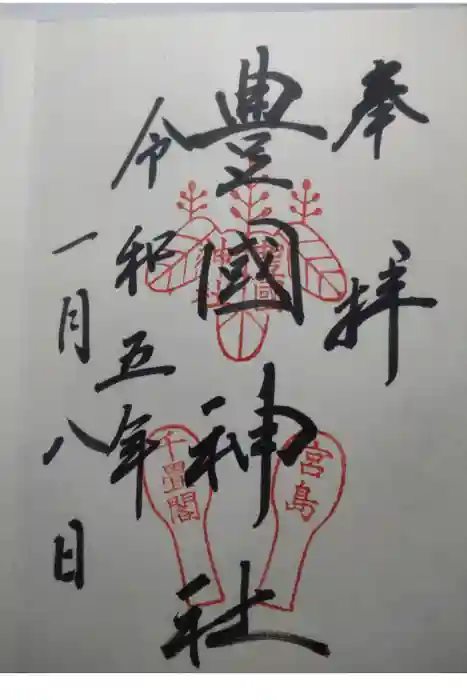 奉拝
豊國神社
豊國
神社
宮島
千畳閣
令和五年
一月八日